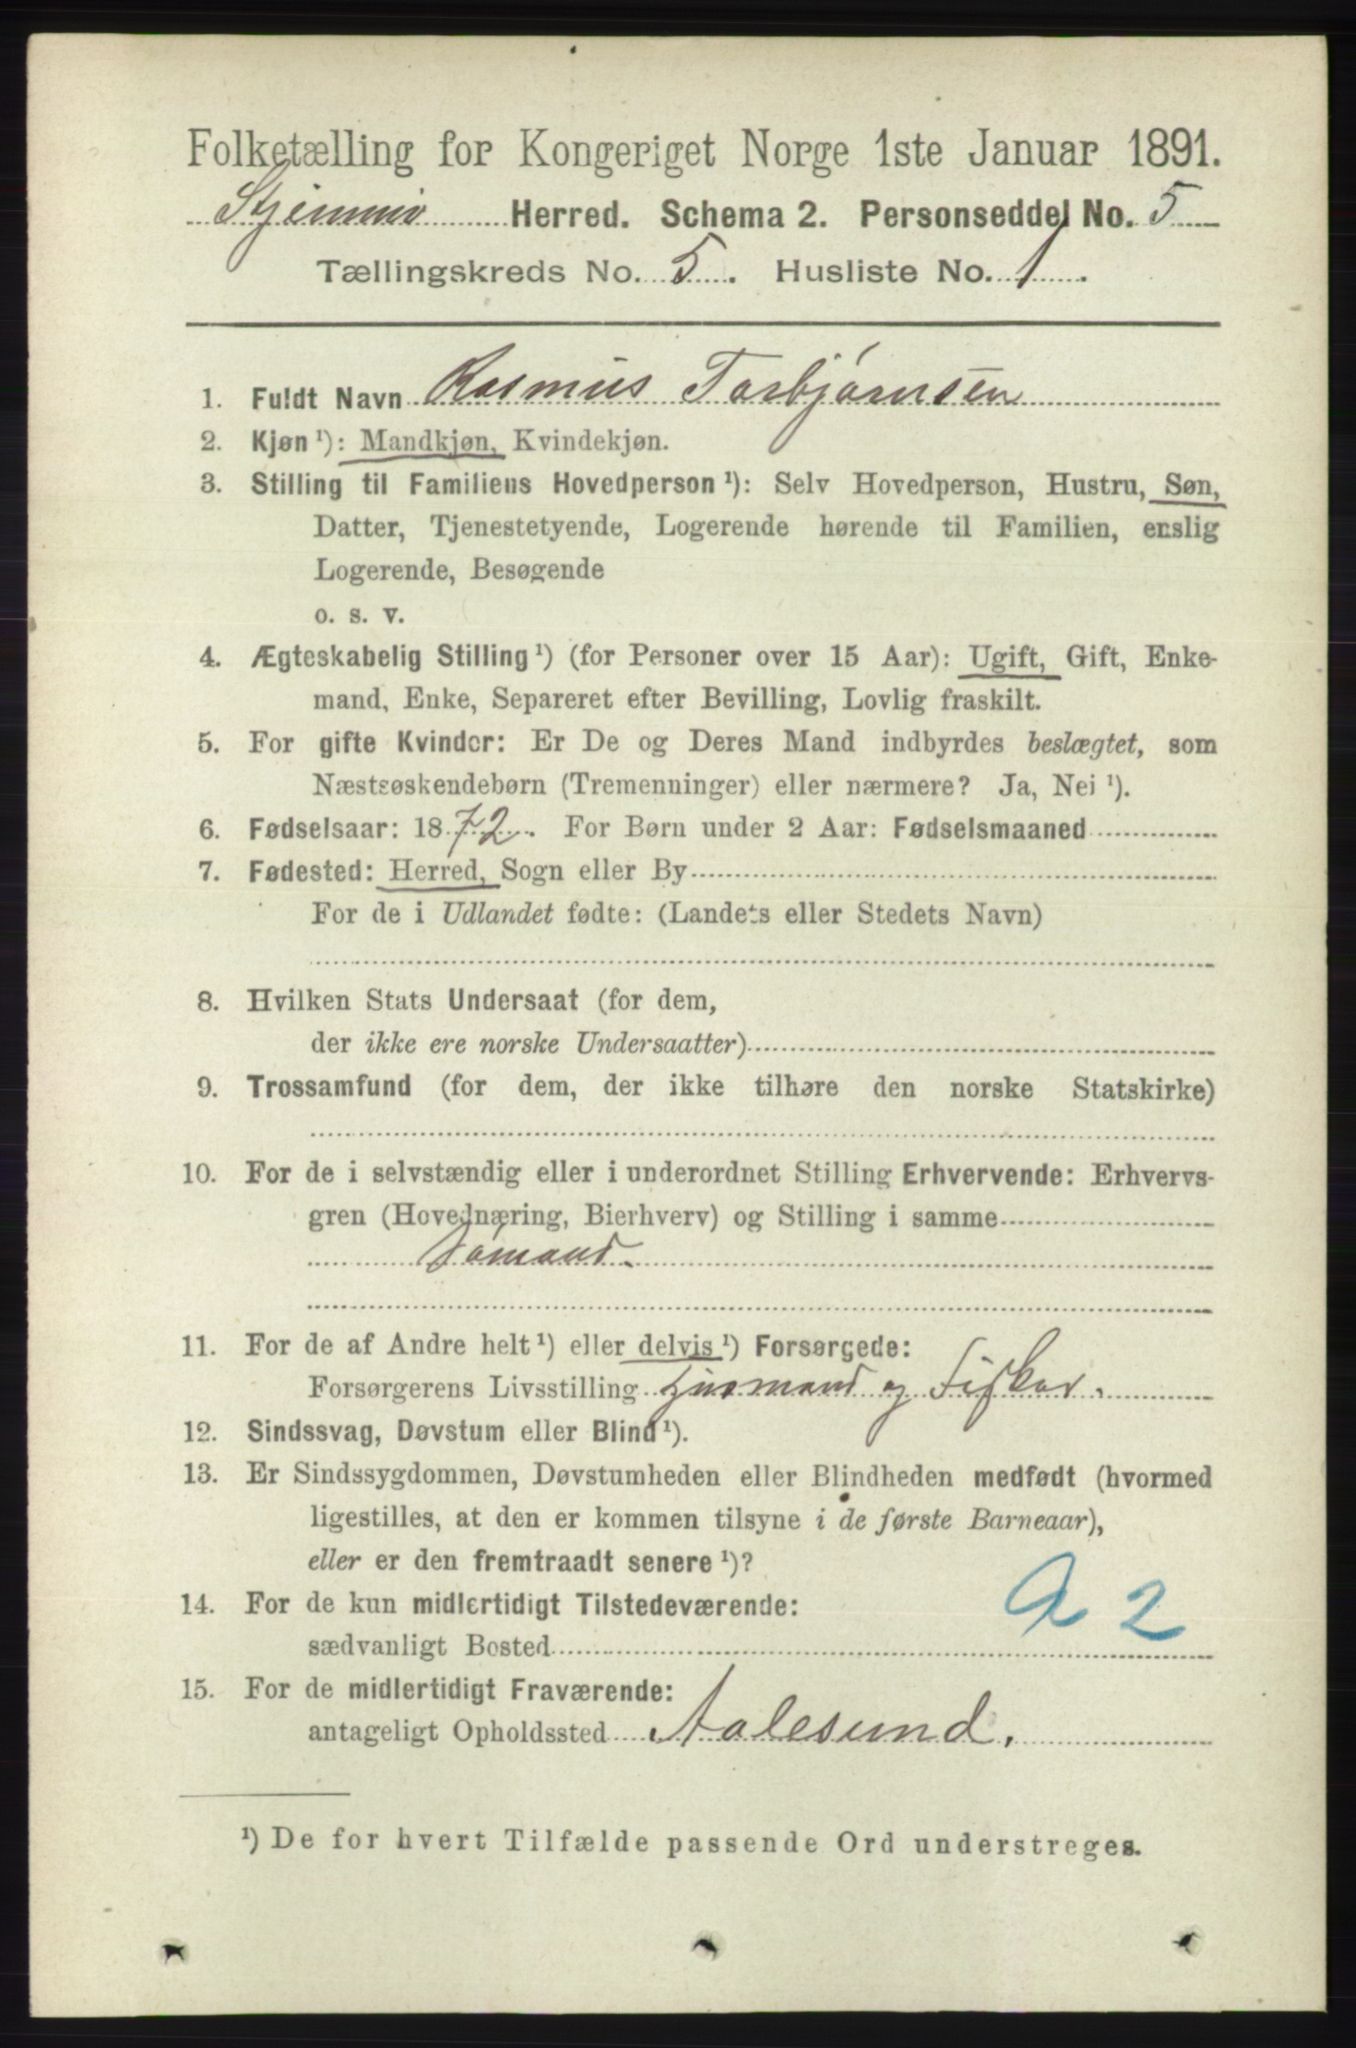 Folketælling for Kongeriget Norge 1ste Januar 1891.
Stjernnø Herred. Schema 2. Personseddel No. 5
Tællingskreds No. 5. Husliste No. 1.
1. Fuldt Navn Rasmus Torbjørnsen
2. Kjøn ¹): Mandkjøn, Kvindekjøn.
3. Stilling til Familiens Hovedperson ¹): Selv Hovedperson, Hustru, Søn,
Datter, Tjenestetyende, Logerende hørende til Familien, enslig
Logerende, Besøgende
o. s. v.
4. Ægteskabelig Stilling ¹) (for Personer over 15 Aar): Ugift, Gift, Enke-
mand, Enke, Separeret efter Bevilling, Lovlig fraskilt.
5. For gifte Kvinder: Er De og Deres Mand indbyrdes beslægtet, som
Næstsøskendebørn (Tremenninger) eller nærmere? Ja, Nei ¹).
6. Fødselsaar: 1872. For Børn under 2 Aar: Fødselsmaaned
7. Fødested: Herred, Sogn eller By
For de i Udlandet fødte: (Landets eller Stedets Navn)
8. Hvilken Stats Undersaat (for dem,
der ikke ere norske Undersaatter)
9. Trossamfund (for dem, der ikke tilhøre den norske Statskirke)
10. For de i selvstændig eller i underordnet Stilling Erhvervende: Erhvervs-
gren (Hovednæring, Bierhverv) og Stilling i samme
Sømand.
11. For de af Andre helt ¹) eller delvis ¹) Forsørgede:
Forsørgerens Livsstilling Husmand og Fisker.
12. Sindssvag, Døvstum eller Blind ¹).
13. Er Sindssygdommen, Døvstumheden eller Blindheden medfødt (hvormed
ligestilles, at den er kommen tilsyne i de første Barneaar),
eller er den fremtraadt senere ¹)?
14. For de kun midlertidigt Tilstedeværende:
sædvanligt Bosted
a 2
15. For de midlertidigt Fraværende:
antageligt Opholdssted Aalesund.
¹) De for hvert Tilfælde passende Ord understreges.